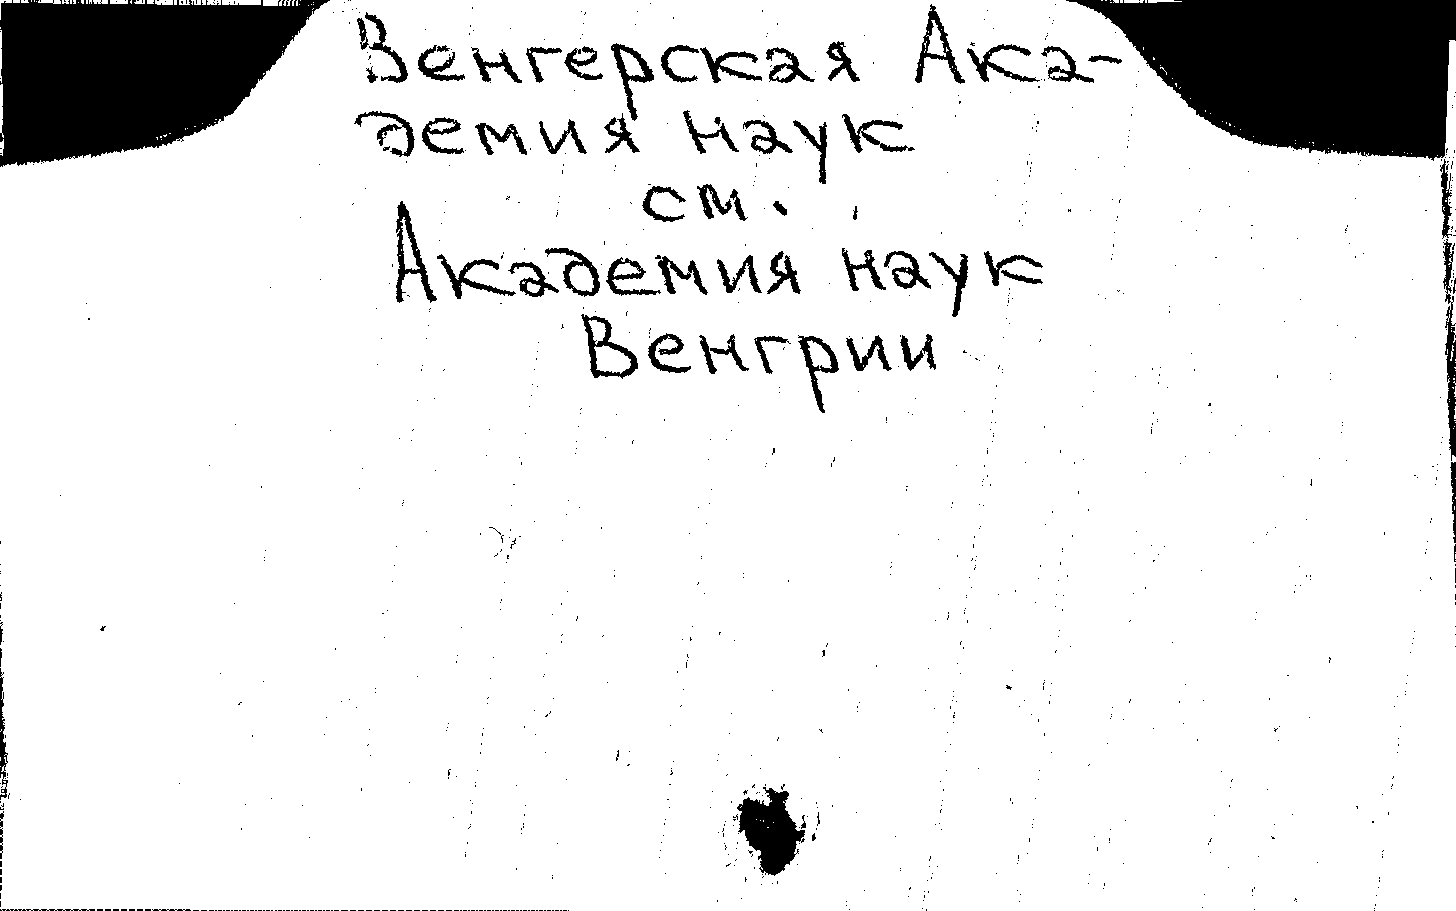 Венгерская Ака-
демия наук
см.
Академия наук
Венгрии